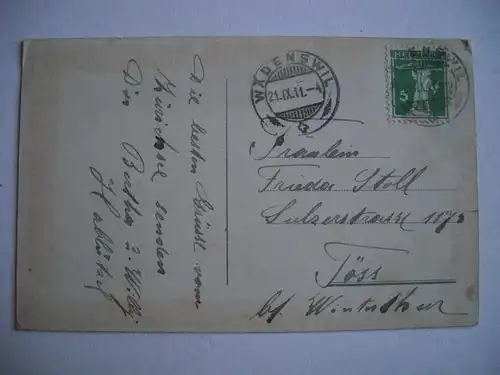 Die besten Grüsse vom
Zürichsee senden
Dir Bertha u. Willy
WÄDENSWIL
21.IX.11.-4
5
Fräulein
Frieda Stoll
Sulzerstrasse
Töss
b/ Winterthur